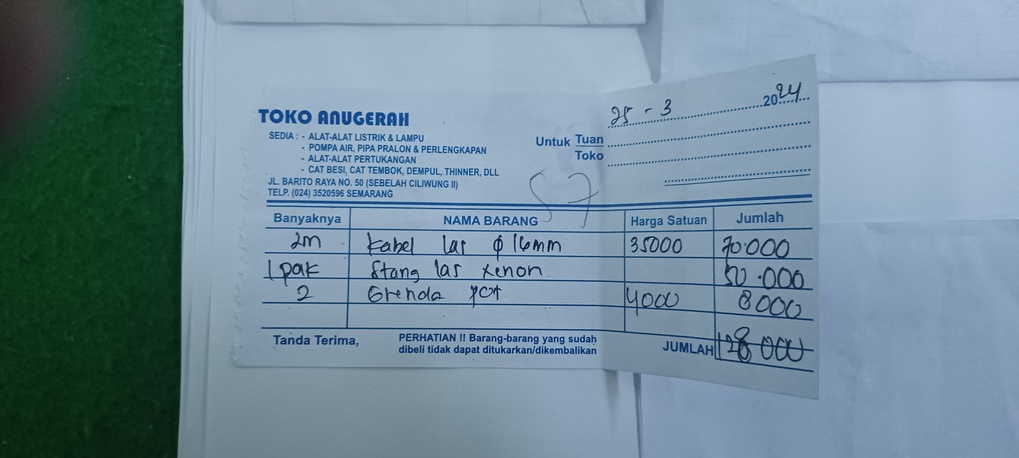 TOKO ANUGERAH
SEDIA : - ALAT-ALAT LISTRIK & LAMPU
- POMPA AIR, PIPA PRALON & PERLENGKAPAN
- ALAT-ALAT PERTUKANGAN
- CAT BESI, CAT TEMBOK, DEMPUL, THINNER, DLL
JL. BARITO RAYA NO. 50 (SEBELAH CILIWUNG II)
TELP. (024) 3520596 SEMARANG
25 - 3 2024
Untuk Tuan
Toko
57
Banyaknya NAMA BARANG Harga Satuan Jumlah
2m Kabel las φ 16mm 35000 70.000
1 pak Stang las xenon 50.000
2 Grenda 4000 8000
Tanda Terima, PERHATIAN !! Barang-barang yang sudah
dibeli tidak dapat ditukarkan/dikembalikan
JUMLAH 128 000